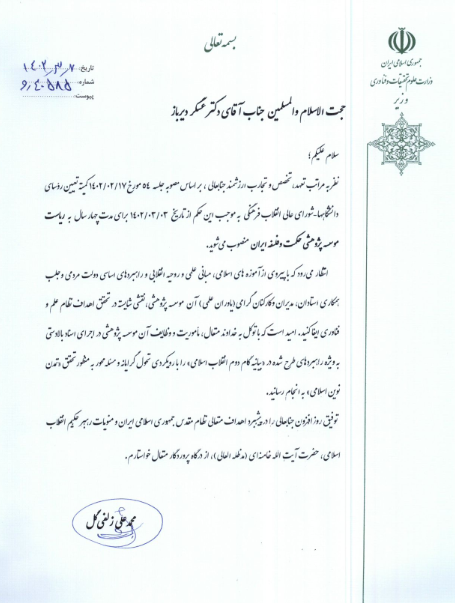 بسمه تعالی
جمهوری اسلامی ایران
وزارت علوم تحقیقات و فناوری
وزیر
تاریخ: ۱۴۰۲٫۳٫۷
شماره: ۴۰۵۸۵٫و
پیوست:
حجت الاسلام والمسلمین جناب آقای دکتر عسگر دیرباز
سلام علیکم؛
نظر به مراتب تعهد، تخصص و تجارب ارزشمند جنابعالی، بر اساس مصوبه جلسه ۵۴ مورخ ۱۴۰۲/۰۲/۱۷ کمیته تعیین رؤسای
دانشگاهها-شورای عالی انقلاب فرهنگی به موجب این حکم از تاریخ ۱۴۰۲/۰۳/۰۳ برای مدت چهار سال به ریاست
موسسه پژوهشی حکمت و فلسفه ایران منصوب می‌شوید.
انتظار می‌رود که با پیروی از آموزه های اسلامی، مبانی علمی و روحیه انقلابی و راهبردهای اساسی دولت مردمی و جلب
همکاری استادان، مدیران و کارکنان گرامی (یاوران علمی) آن موسسه پژوهشی، نقشی شایسته در تحقق اهداف نظام علم و
فناوری ایفا کنید. امید است که با توکل به خداوند متعال، مأموریت و وظایف آن موسسه پژوهشی در اجرای اسناد بالادستی
به ویژه راهبردهای طرح شده در «بیانیه گام دوم انقلاب اسلامی» را با رویکردی تحول گرایانه و مسئله محور به منظور تحقق «تمدن
نوین اسلامی» به انجام رسانید.
توفیق روز افزون جنابعالی را در پیشبرد اهداف متعالی نظام مقدس جمهوری اسلامی ایران و منویات رهبر حکیم انقلاب
اسلامی، حضرت آیت الله خامنه‌ای (مدظله العالی)، از درگاه پروردگار متعال خواستارم.
محمد علی زلفی گل